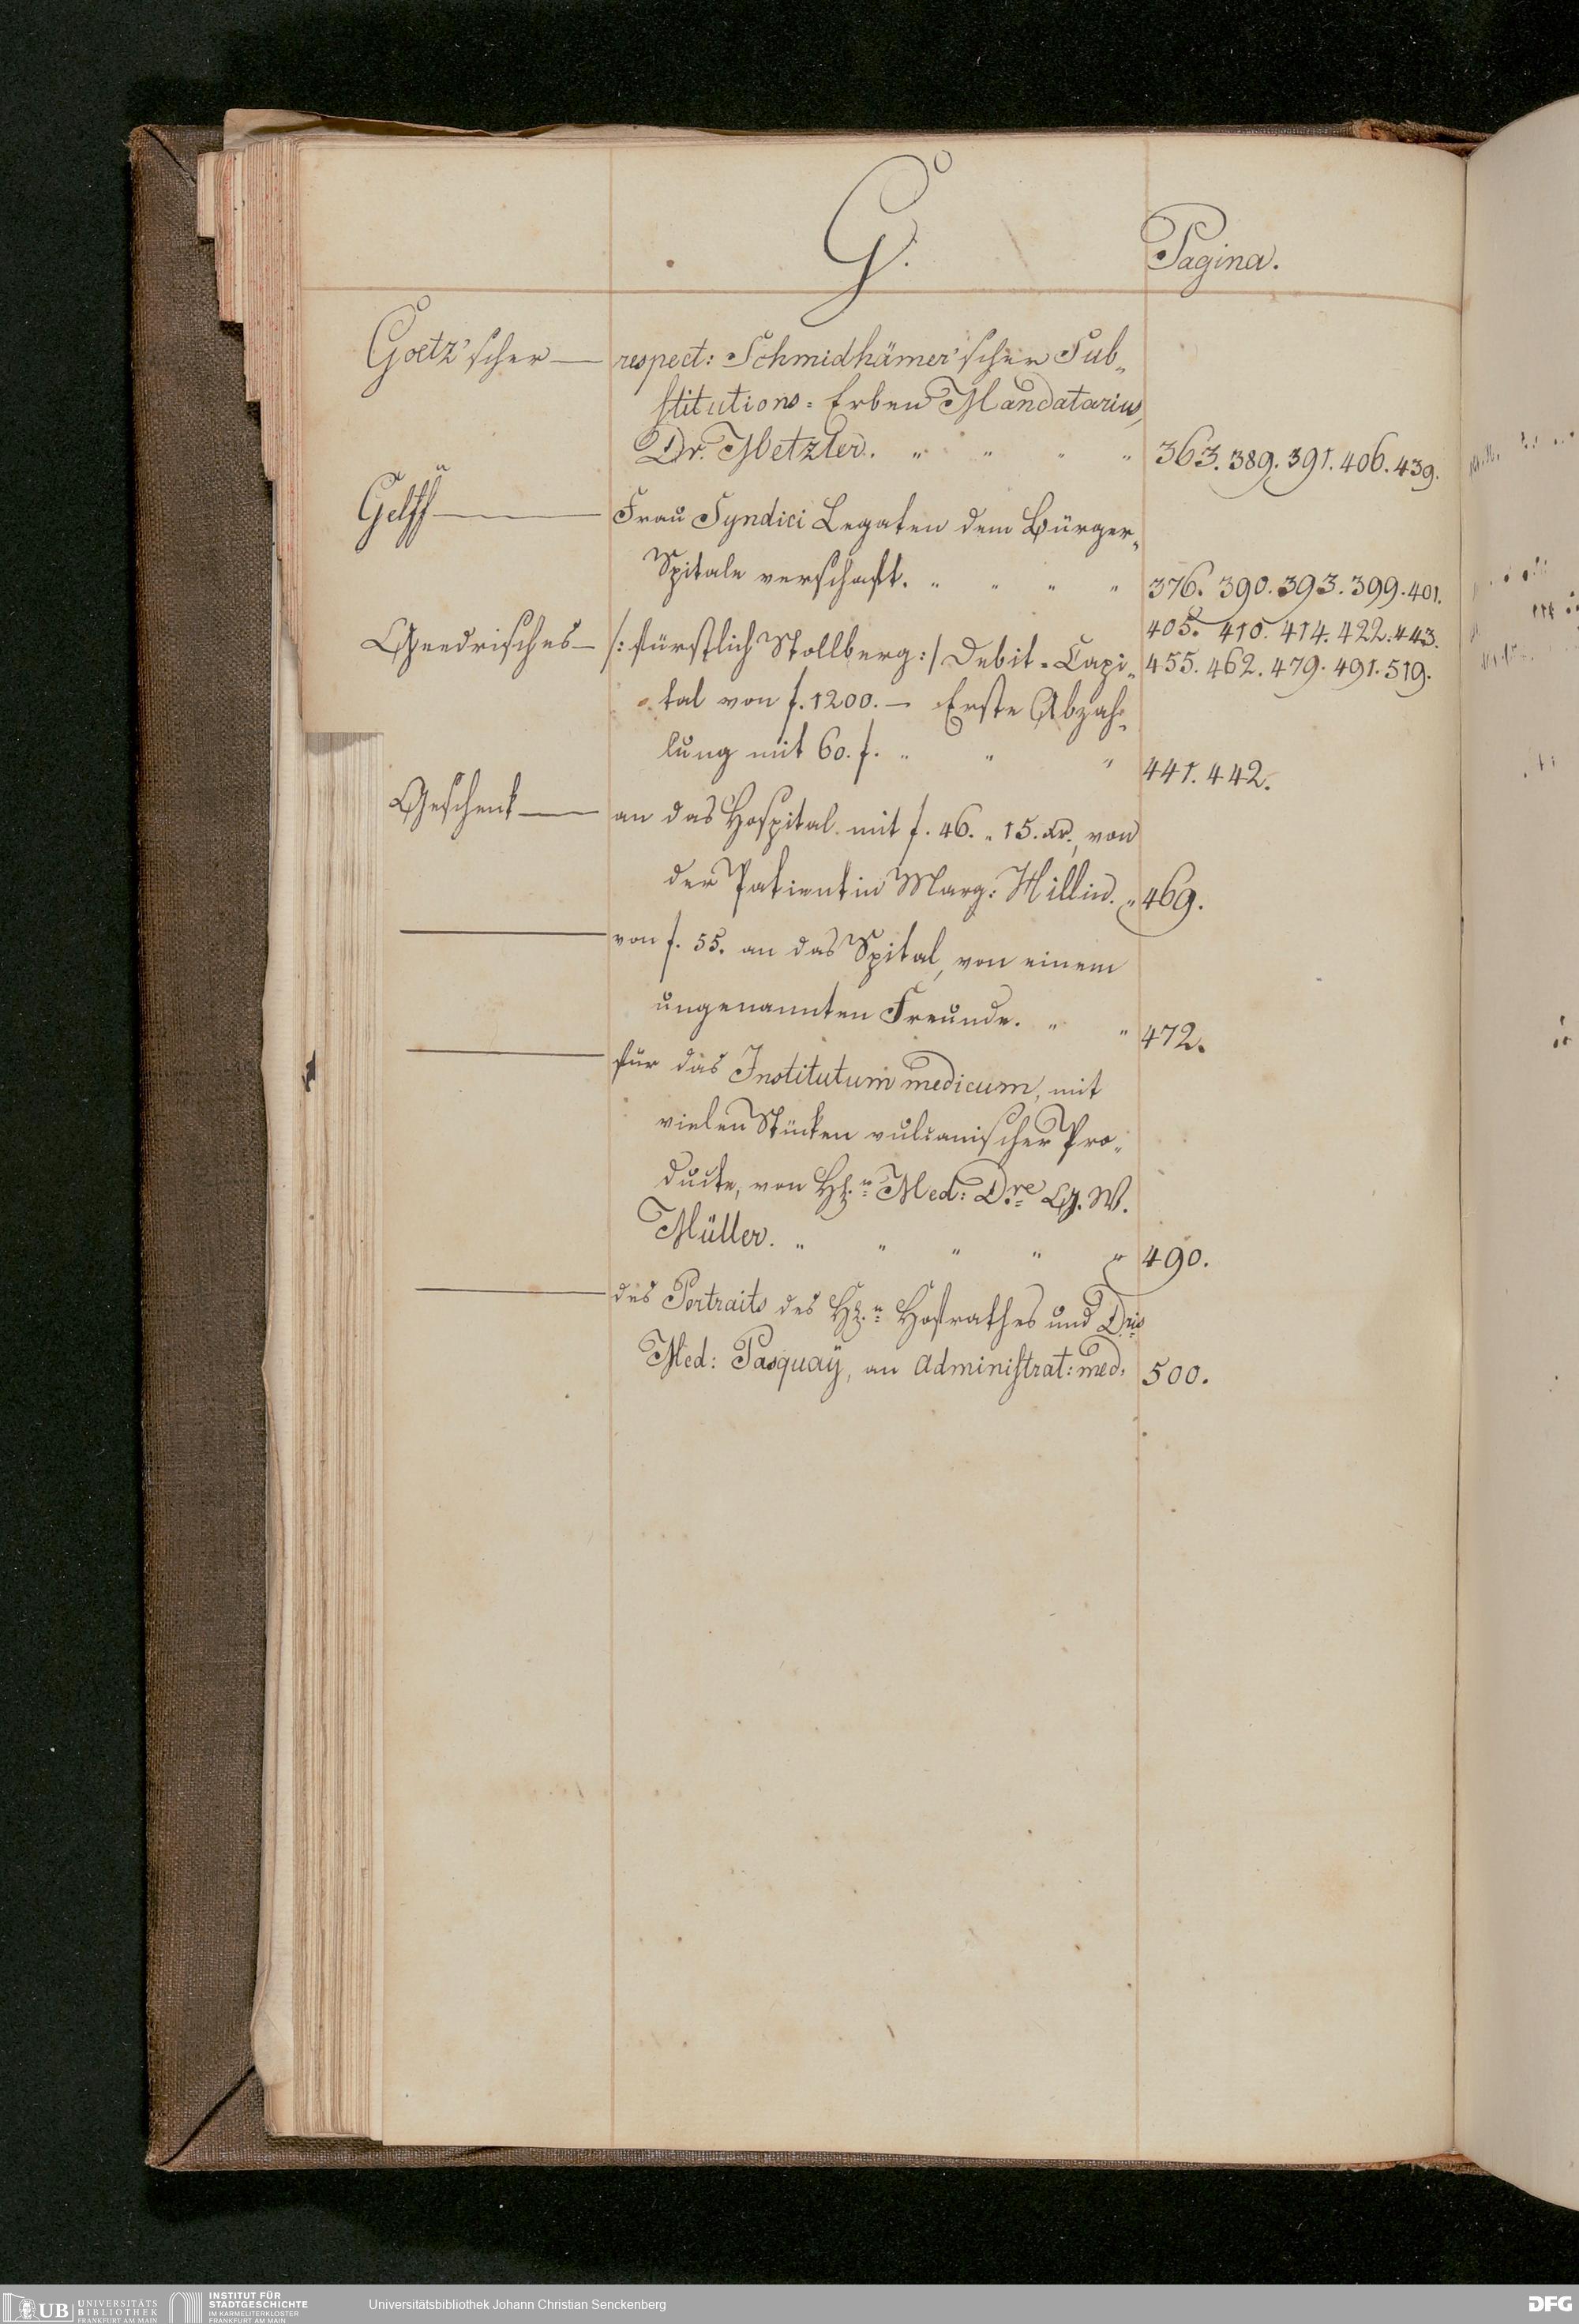 G.
Pagina.
Goetz'scher — respect: Schmidhämer'scher Sub„
stitutions = Erben Mandatarius,
Dr. Metzler. „ „ „ „ 363. 389. 391. 406. 439.
Gelff — Frau Syndici Legaten dem Bürger„
Spitale verschaft. „ „ „ „ 376. 390. 393. 399. 401.
405. 410. 414. 422. 443.
Geedrisches — /: fürstlich Stollberg :/ Debit = Capi„ 455. 462. 479. 491. 519.
tal von f. 1200. — Erste Abzah„
lung mit 60. f. „ „ „ 441. 442.
Geschenk — an das Hospital mit f. 46. „ 15. Xr., von
der Patientin Marg: Hillin. „ 469.
— von f. 55. an das Spital, von einem
ungenannten Freunde. „ „ 472.
— für das Institutum medicum, mit
vielen Stücken vulcanischer Pro„
ducte, von H. Med: Dre G. W.
Müller. „ „ „ „ „ 490.
— des Portraits des H. Hofrathes und Dris
Med: Pasquaÿ, an Administrat: med: 500.
UB UNIVERSITÄTS
BIBLIOTHEK
FRANKFURT AM MAIN
INSTITUT FÜR
STADTGESCHICHTE
IM KARMELITERKLOSTER
FRANKFURT AM MAIN
Universitätsbibliothek Johann Christian Senckenberg
DFG